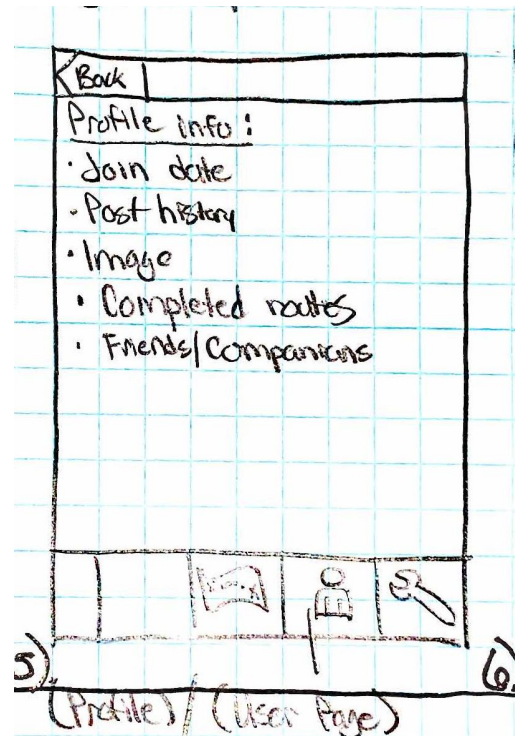 Back
Profile info:
· Join date
· Post history
· Image
· Completed routes
· Friends/Companions
5)
6)
(Profile)/(User Page)